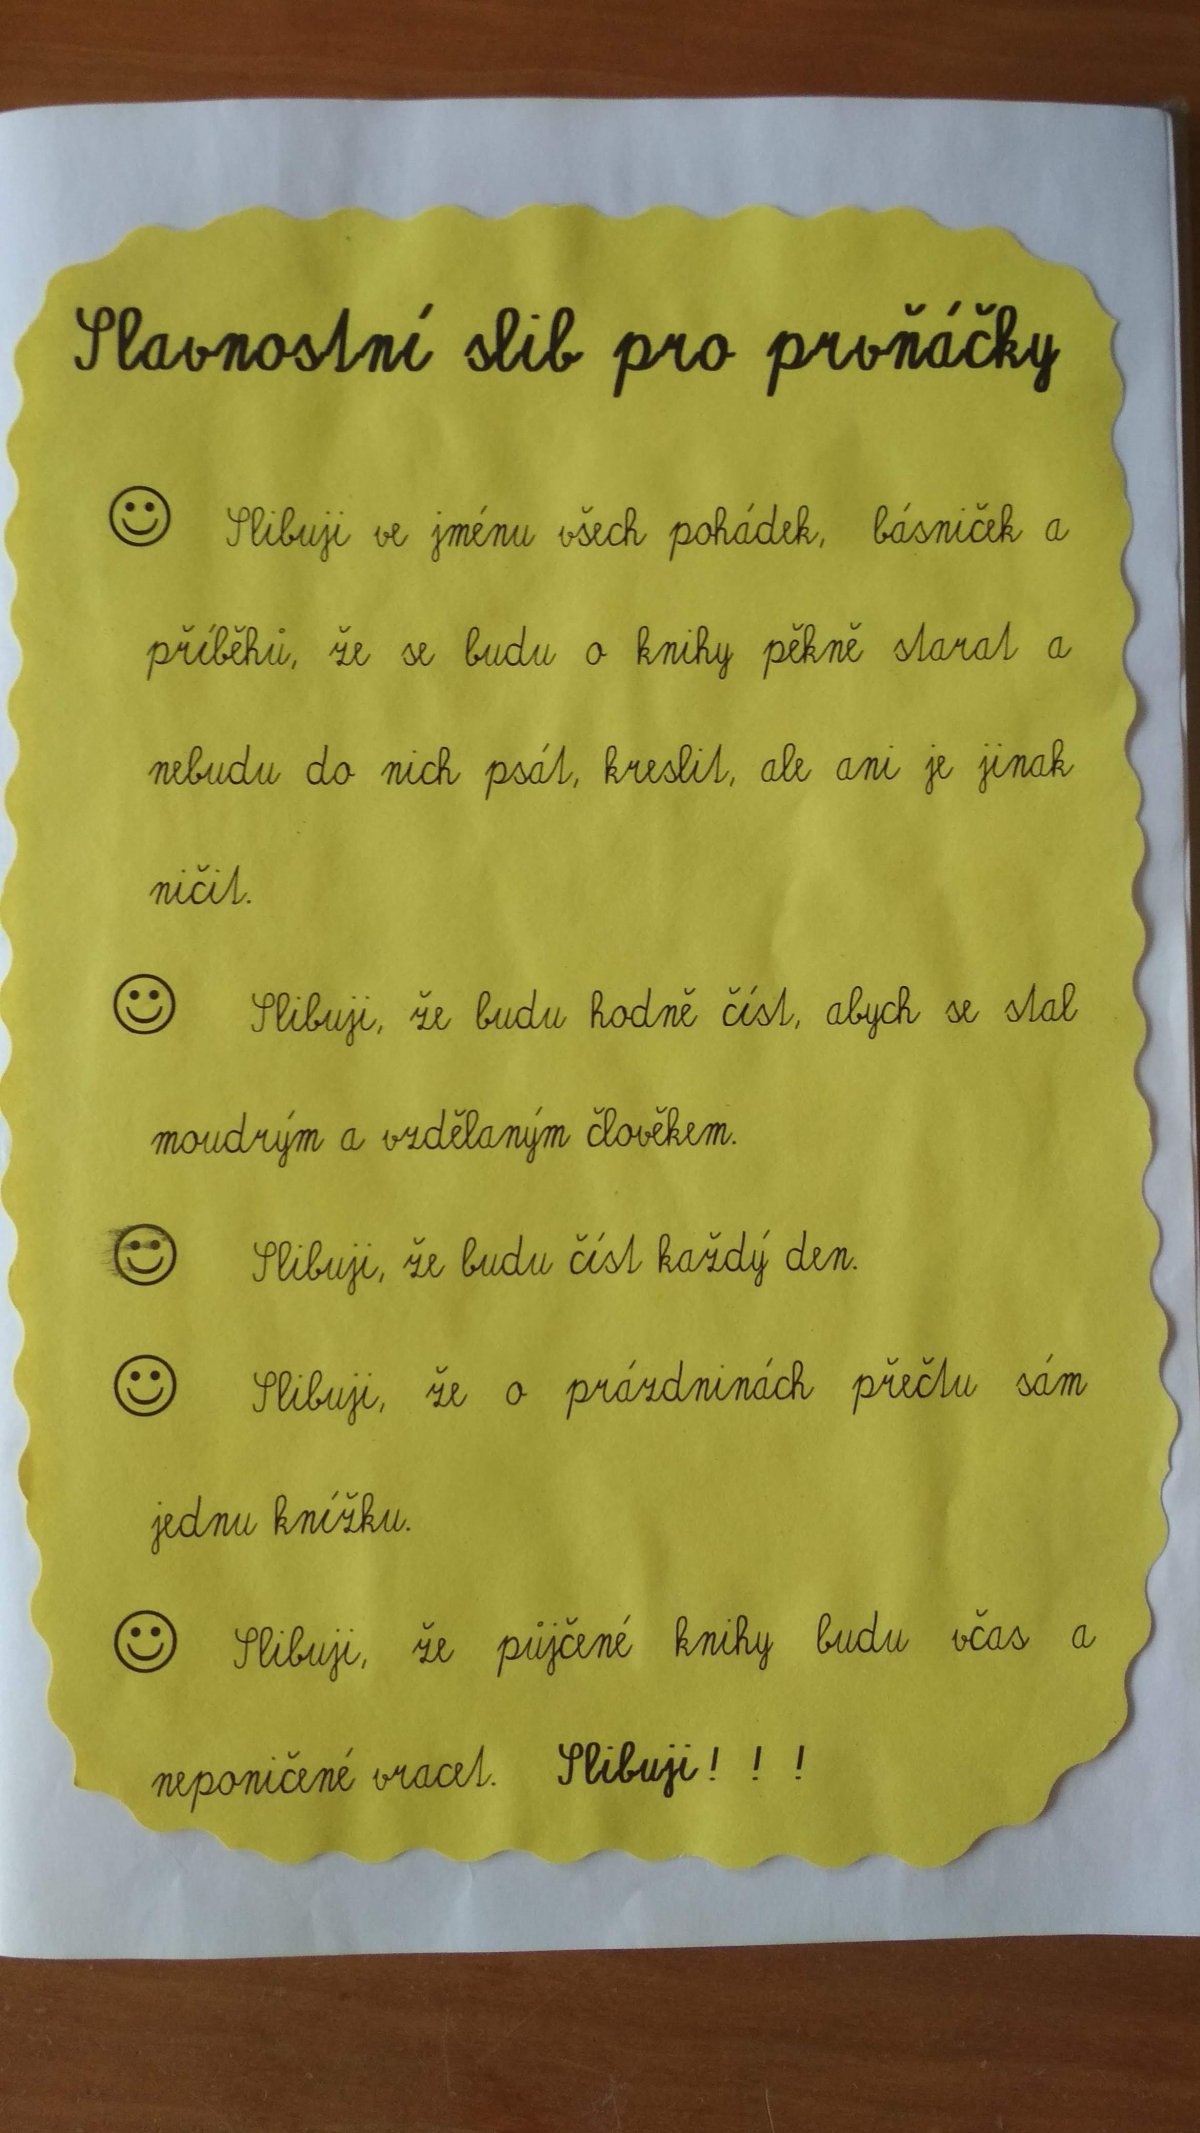 Slavnostní slib pro prvňáčky
Slibuji ve jménu všech pohádek, básniček a
příběhů, že se budu o knihy pěkně starat a
nebudu do nich psát, kreslit, ale ani je jinak
ničit.
Slibuji, že budu hodně číst, abych se stal
moudrým a vzdělaným člověkem.
Slibuji, že budu číst každý den.
Slibuji, že o prázdninách přečtu sám
jednu knížku.
Slibuji, že půjčené knihy budu včas a
neponičené vracet. Slibuji! ! !